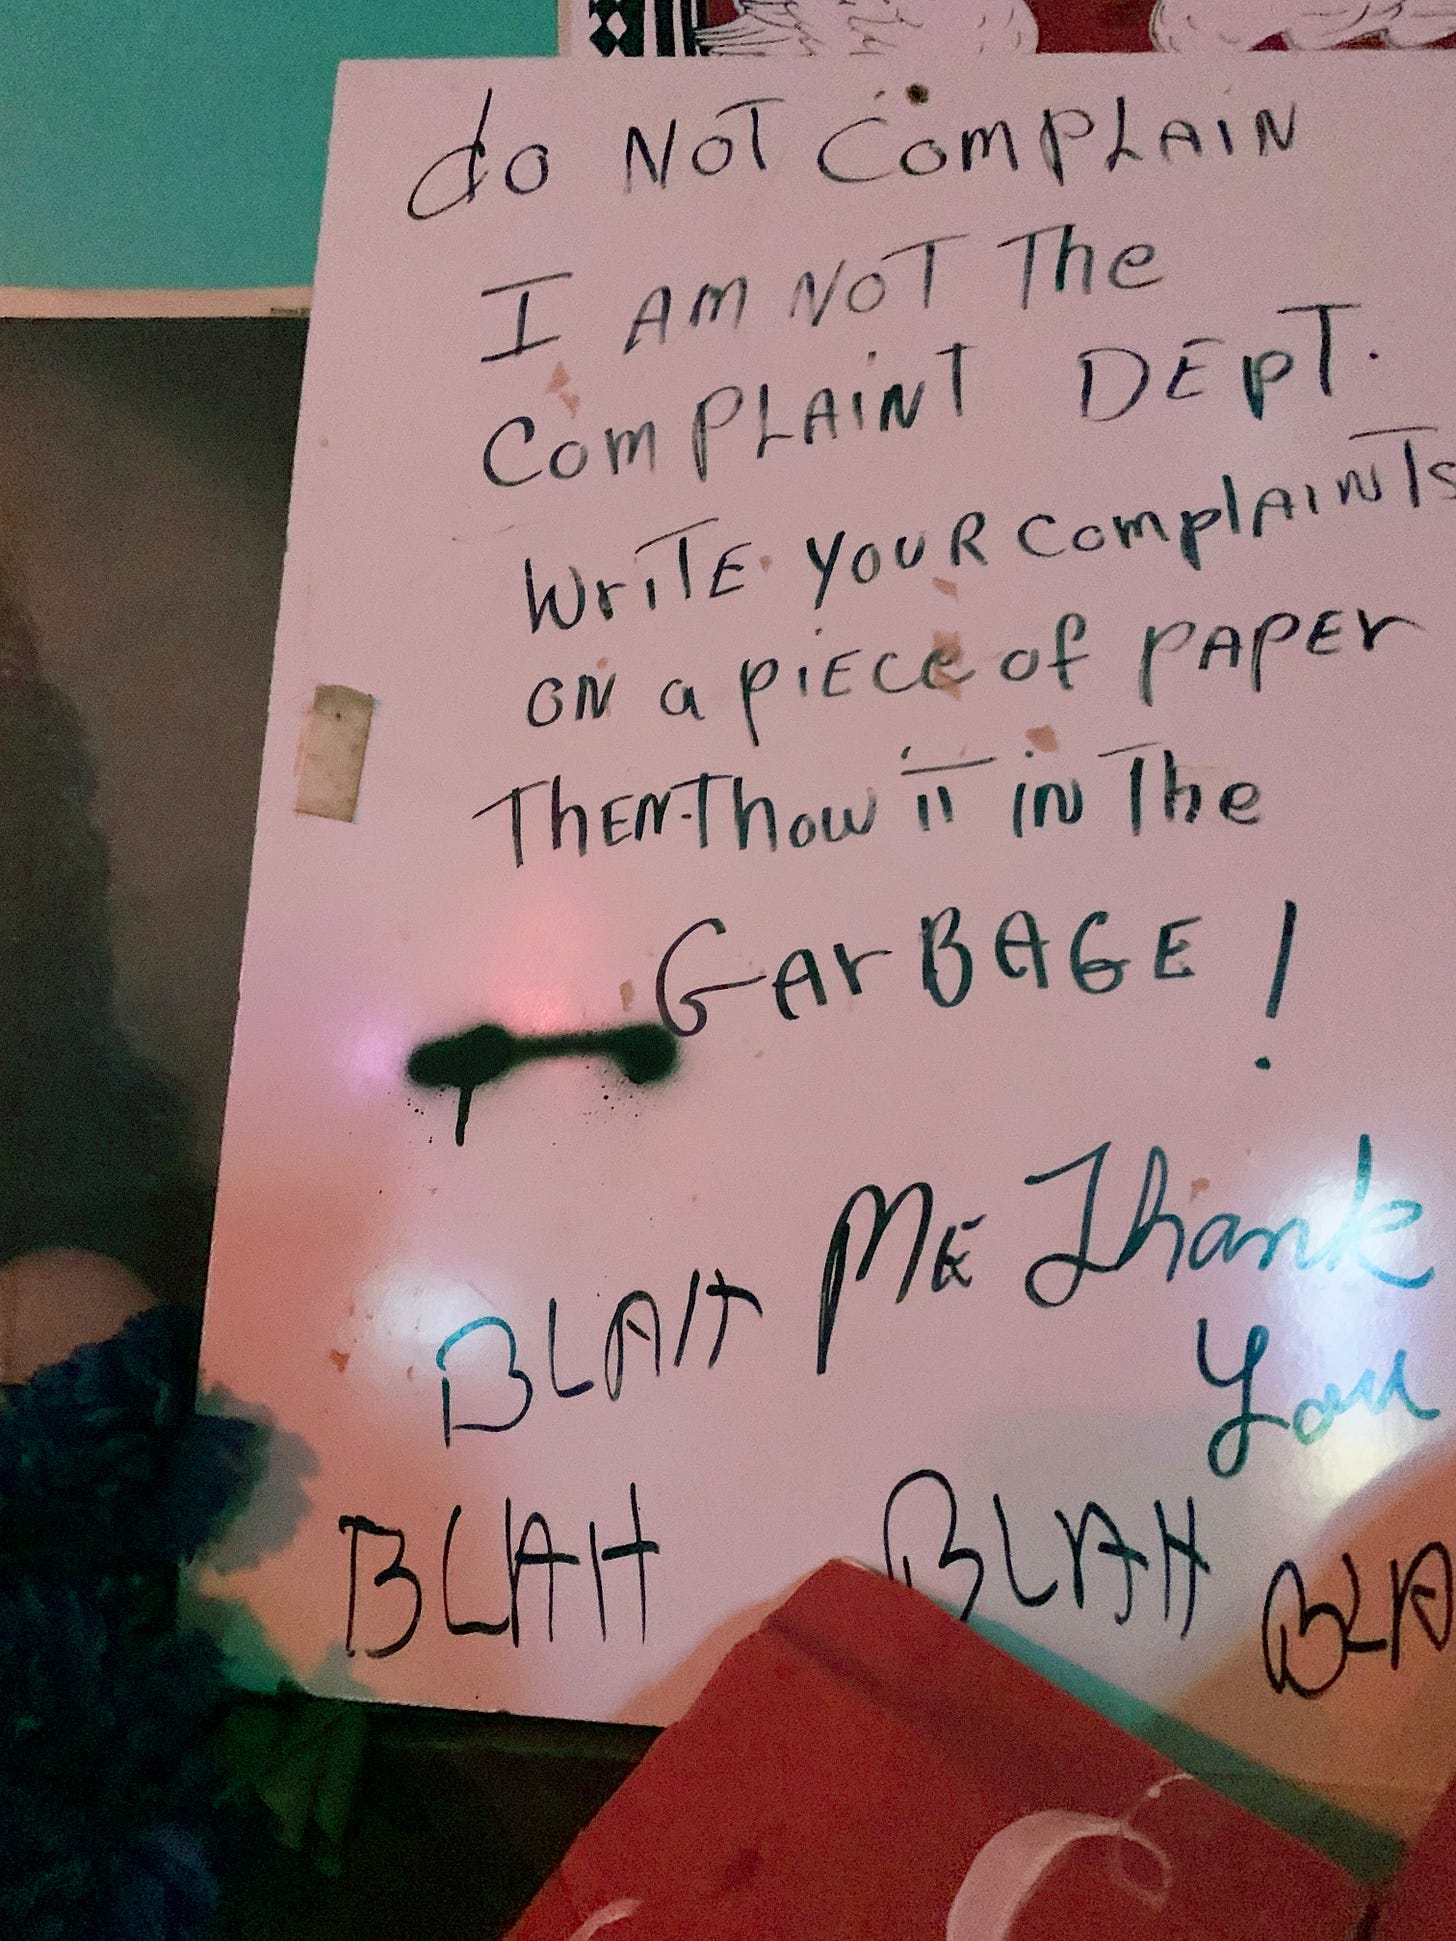 do NOT COMPLAIN
I AM NOT The
COMPLAINT DEPT.
WriTE YOUR complaints
ON a piECE of PAPEr
ThEN Thow iT iN The
GArBAGE!
BLAH ME Thank
You
BLAH BLAH BLA